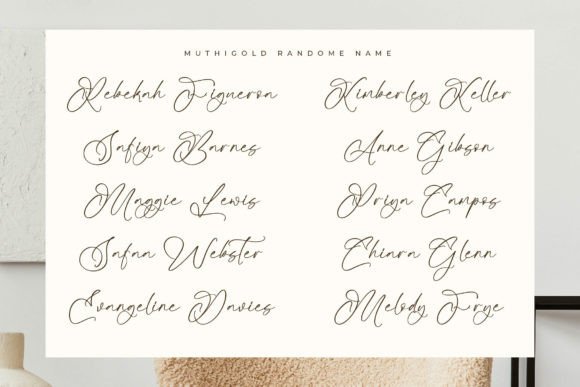 MUTHIGOLD RANDOME NAME
Rebekah Figueron
Kimberley Keller
Safiya Barnes
Anne Gibson
Maggie Lewis
Priya Campos
Safan Webster
Chiara Glenn
Evangeline Davies
Melody Frye